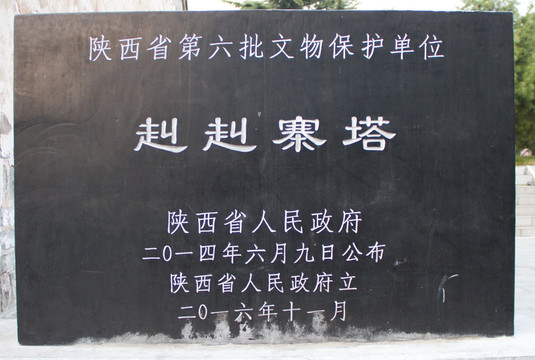 陕西省第六批文物保护单位
赳赳寨塔
陕西省人民政府
二〇一四年六月九日公布
陕西省人民政府立
二〇一六年十一月